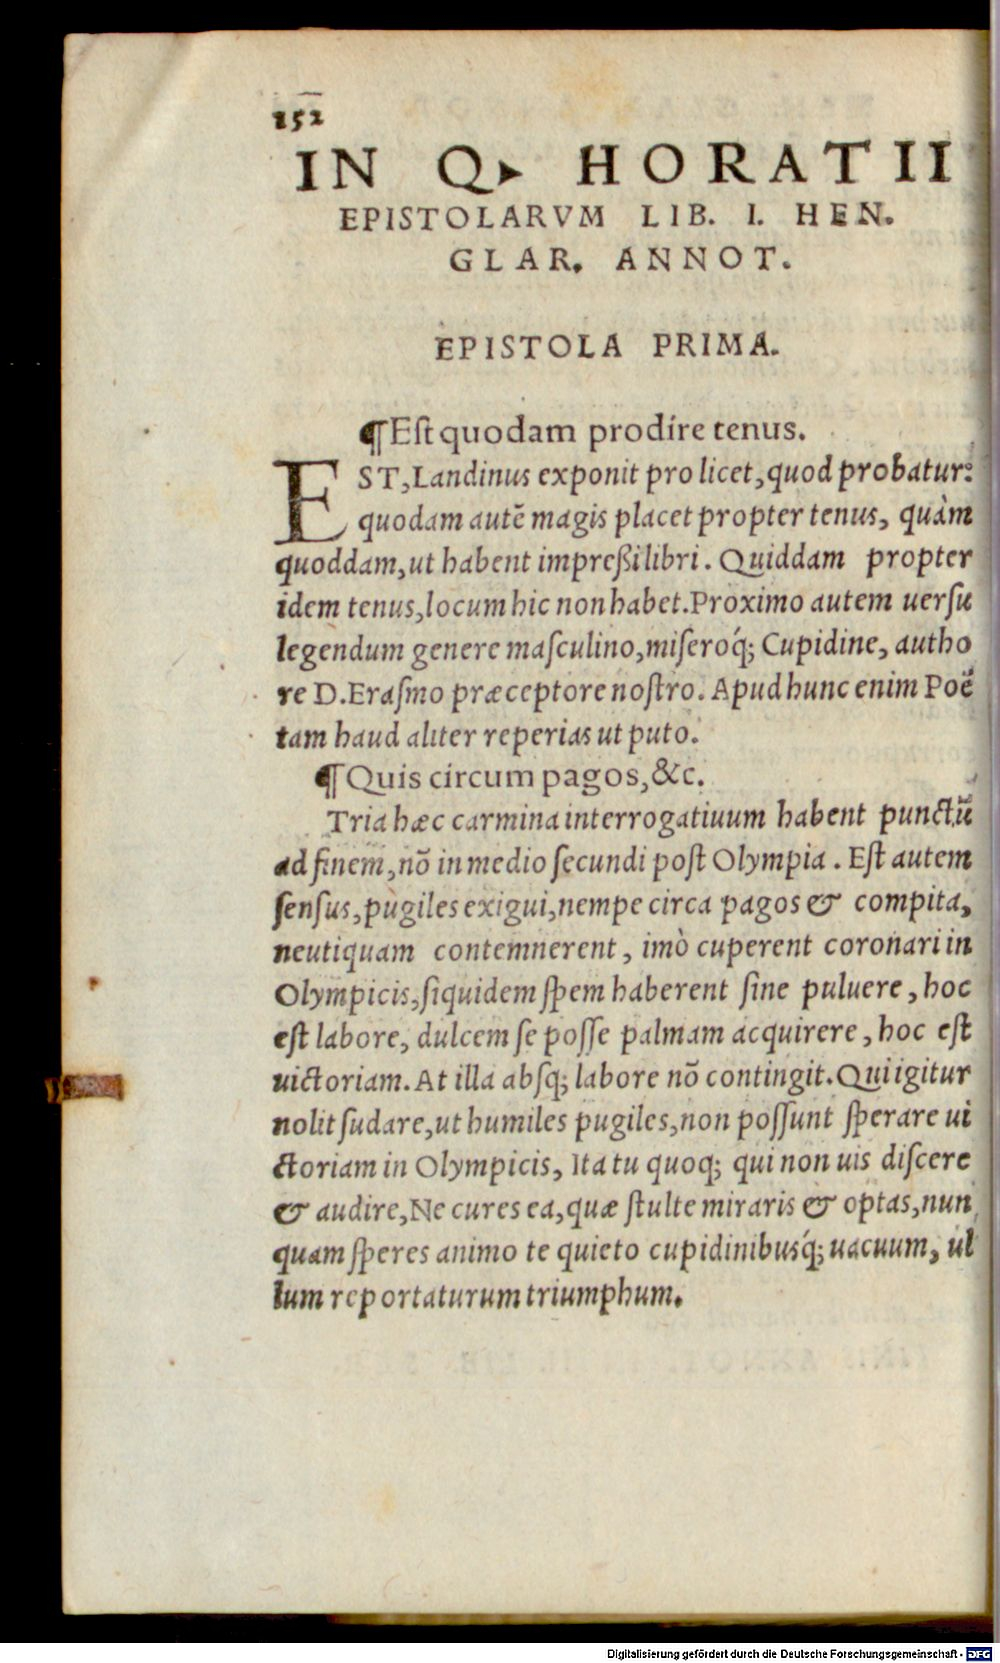 152
IN Q▸ HORATII
EPISTOLARVM LIB. I. HEN.
GLAR. ANNOT.
EPISTOLA PRIMA.
¶Eſt quodam prodire tenus.
EST, Landinus exponit pro licet, quod probatur:
quodam autē magis placet propter tenus, quàm
quoddam, ut habent impreßi libri. Quiddam propter
idem tenus, locum hic non habet. Proximo autem uerſu
legendum genere maſculino, miſeroq́; Cupidine, autho
re D. Eraſmo præceptore noſtro. Apud hunc enim Poë
tam haud aliter reperias ut puto.
¶Quis circum pagos, &c.
Tria hæc carmina interrogatiuum habent punctū
ad finem, nō in medio ſecundi poſt Olympia. Eſt autem
ſenſus, pugiles exigui, nempe circa pagos & compita,
neutiquam contemnerent, imò cuperent coronari in
Olympicis, ſiquidem ſpem haberent ſine puluere, hoc
eſt labore, dulcem ſe poſſe palmam acquirere, hoc eſt
uictoriam. At illa abſq; labore nō contingit. Qui igitur
nolit ſudare, ut humiles pugiles, non poſſunt ſperare ui
ctoriam in Olympicis, Ita tu quoq; qui non uis diſcere
& audire, Ne cures ea, quæ ſtulte miraris & optas, nun
quam ſperes animo te quieto cupidinibusq́; uacuum, ul
lum reportaturum triumphum.
Digitalisierung gefördert durch die Deutsche Forschungsgemeinschaft - DFG